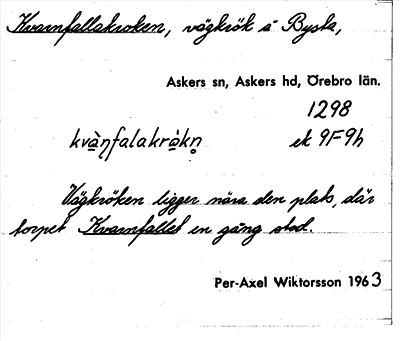 Kvarnfallakroken, vägkrök å Bysta,
Askers sn, Askers hd, Örebro län.
1298
kvàn̥falakrȧkn̥ ek 9F9h
Vägkröken ligger nära den plats, där
torpet Kvarnfallet en gång stod.
Per-Axel Wiktorsson 1963